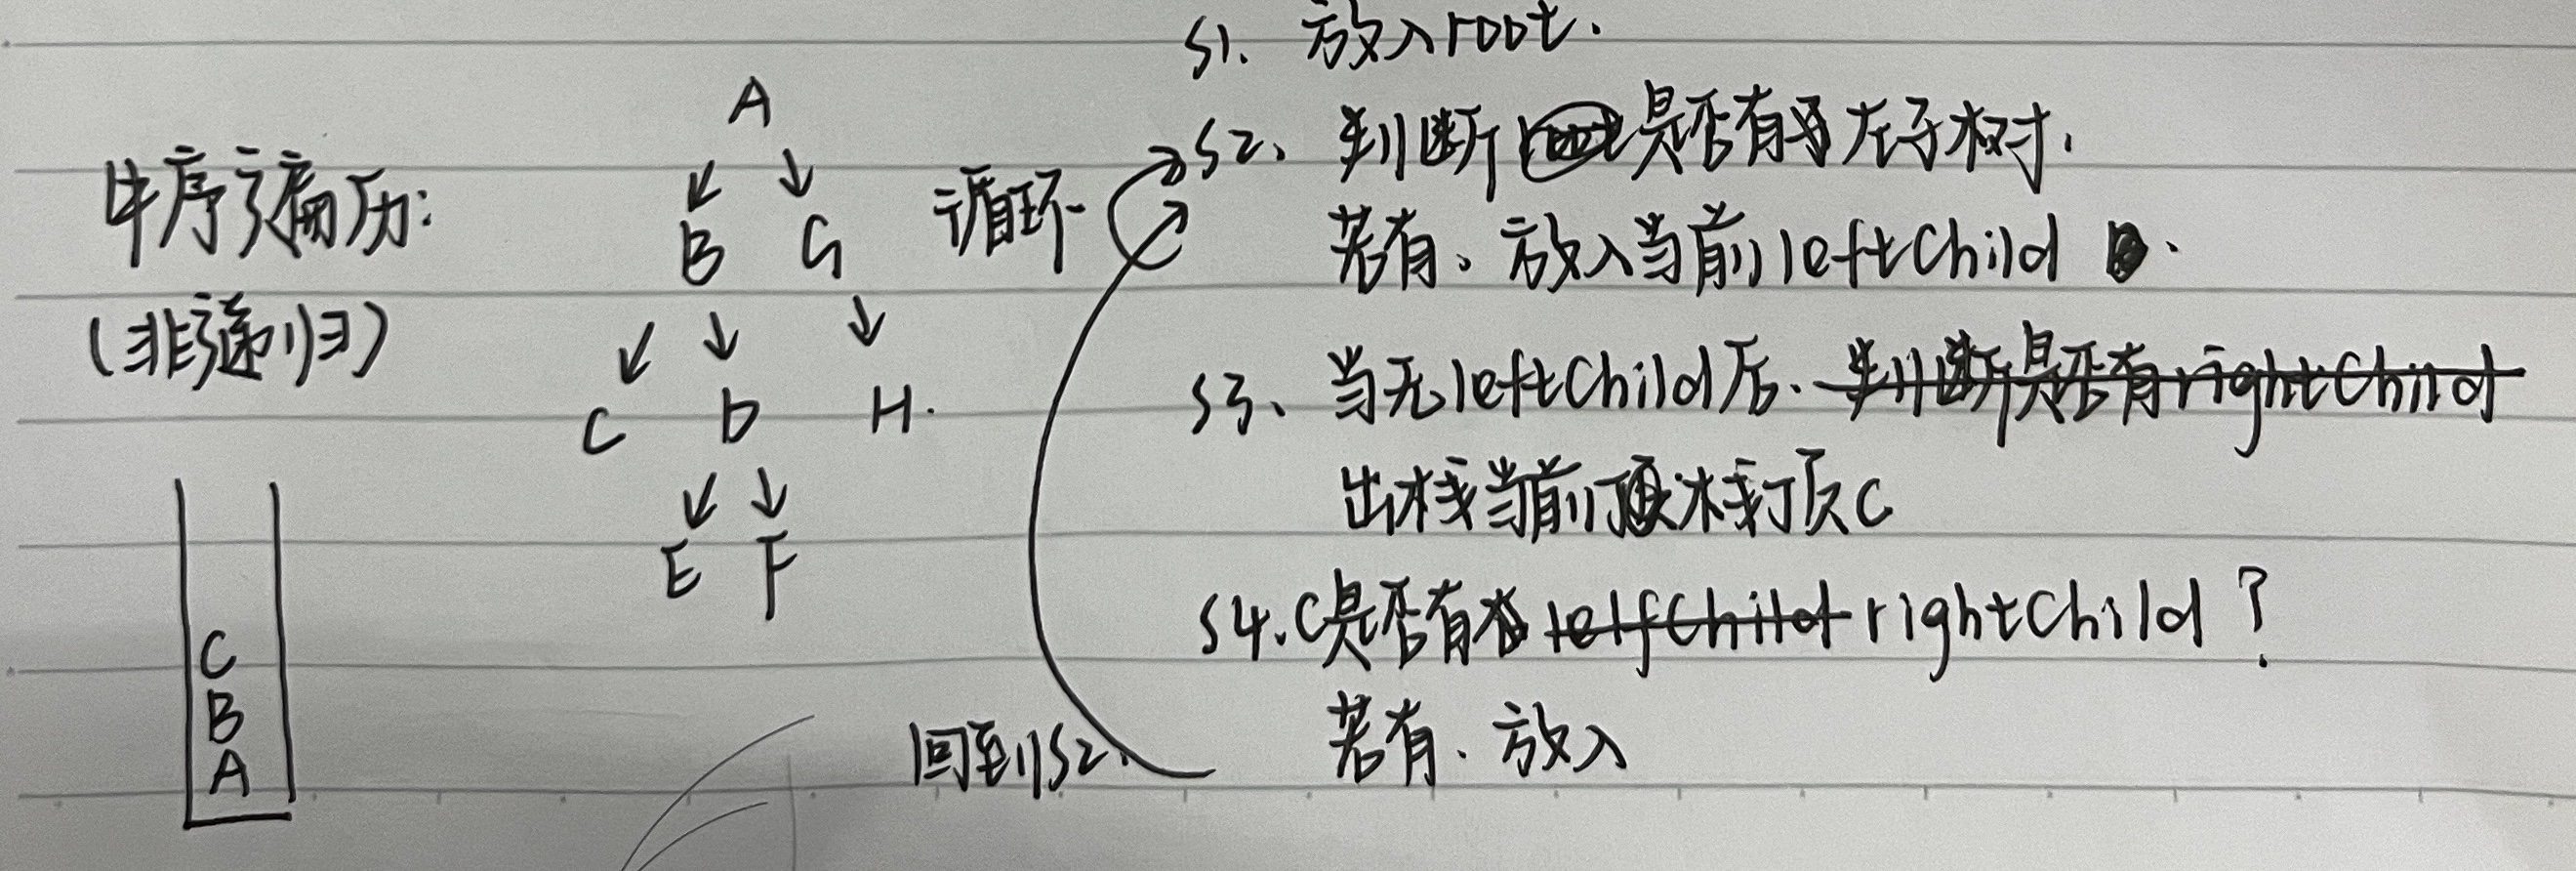 中序遍历:
(非递归)
A
B G
C D H.
E F
C
B
A
循环
S1. 放入root.
S2、判断是否有左子树.
若有、放入当前leftChild.
S3、当无leftChild后. 判断是否有rightChild
出栈当前栈顶C
S4. C是否有 lelfChild rightChild?
若有、放入
回到S2.